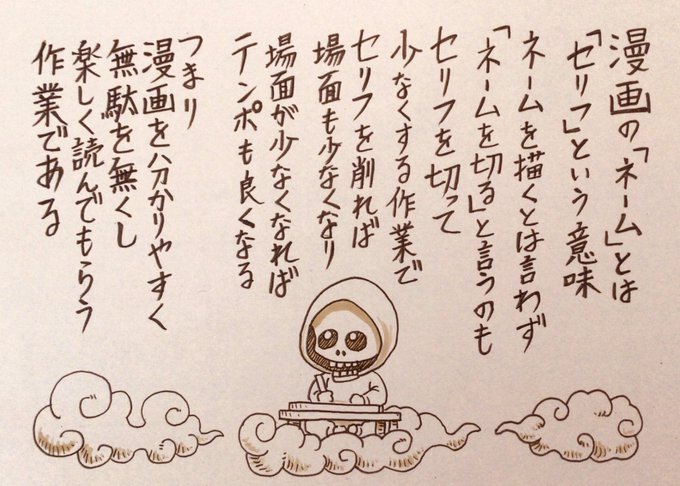 漫画の「ネーム」とは
「セリフ」という意味
ネームを描くとは言わず
「ネームを切る」と言うのも
セリフを切って
少なくする作業で
セリフを削れば
場面も少なくなり
場面が少なくなれば
テンポも良くなる
つまり
漫画を分かりやすく
無駄を無くし
楽しく読んでもらう
作業である